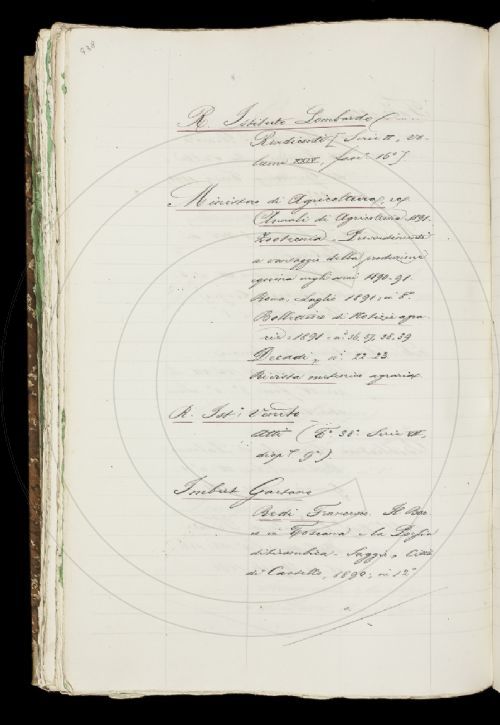 938
R. Istituto Lombardo (....
Rendiconti [Serie II, vo-
lume XXIV, fasc. 16°]
Ministero di Agricoltura,
Annali di Agricoltura 1891.
Zootecnia. Provvedimenti
a vantaggio della produzione
equina negli anni 1890-91.
Roma, Luglio 1891, in 8°.
Bollettino di Notizie agra-
rie. 1891. n.i 36, 37, 38, 39
Decadi, n.i 22-23
Rivista meteorico agraria
R. Ist.° Veneto
Atti (T.° 38° Serie VII,
disp.a 9a)
Imbert Gaetano
Redi Francesco. Il Bac-
co in Toscana e la Poesia
ditirambica. Saggio, Città
di Castello, 1890, in 12°